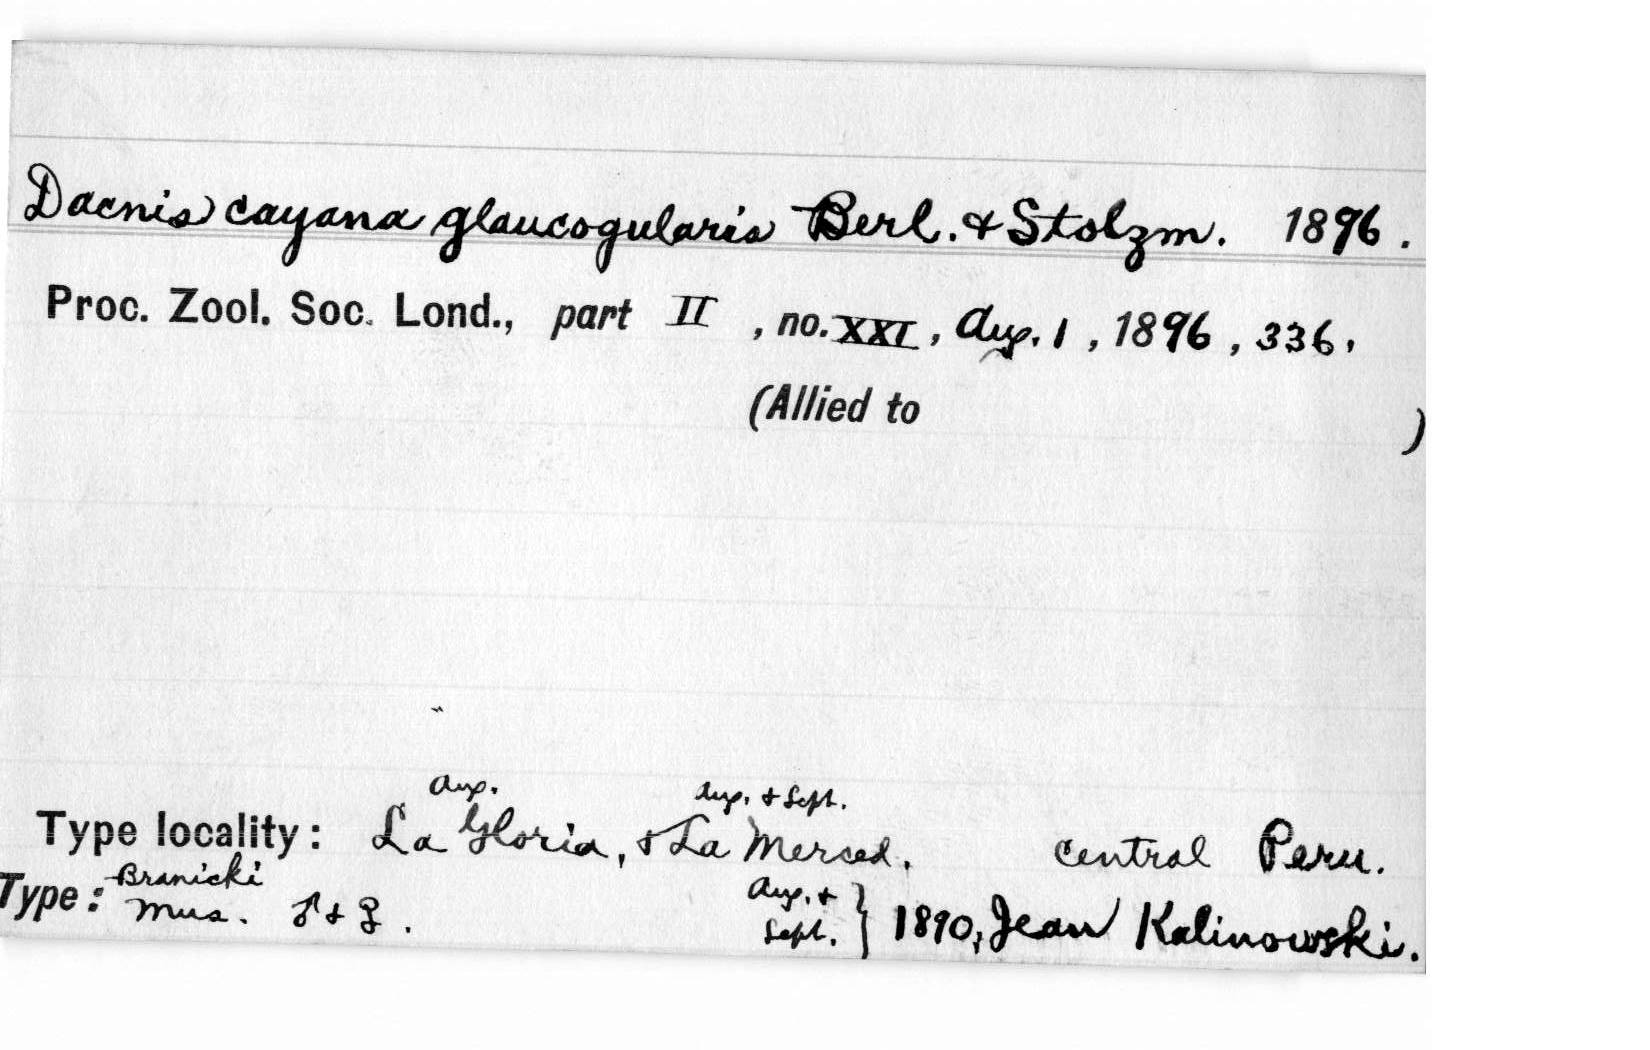 Dacnis cayana glaucogularis Berl. & Stolzm. 1896.
Proc. Zool. Soc. Lond., part II, no. XXI, Aug. 1, 1896, 336.
(Allied to )
Aug. Aug. & Sept.
Type locality: La Gloria, & La Merced. central Peru.
Type: Branicki Mus. ♂ & ♀. Aug. & Sept. } 1890, Jean Kalinowski.